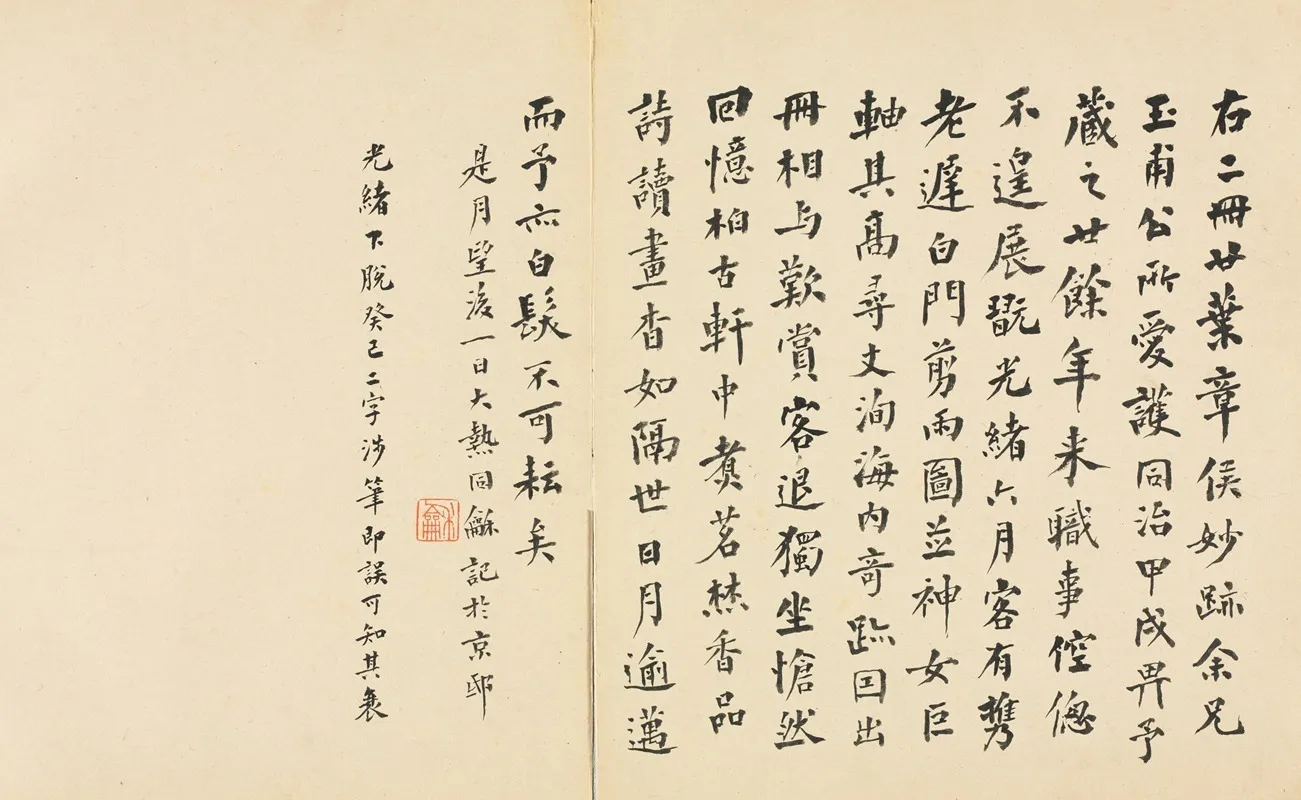 右二冊廿葉章侯妙跡余兄
玉甫公所愛護同治甲戌畀予
藏之廿餘年来職事倥傯
不遑展翫光緒六月客有攜
老遲白門剪雨圖並神女巨
軸其高尋丈洵海内奇跡因出
冊相与歎賞客退獨坐愴然
回憶柏古軒中煑茗焚香品
詩讀畫杳如隔世日月逾邁
而予亦白髮不可耘矣
是月望後一日大熱同龢記於京邸
龢
光緒下脫癸巳二字涉筆即誤可知其衰